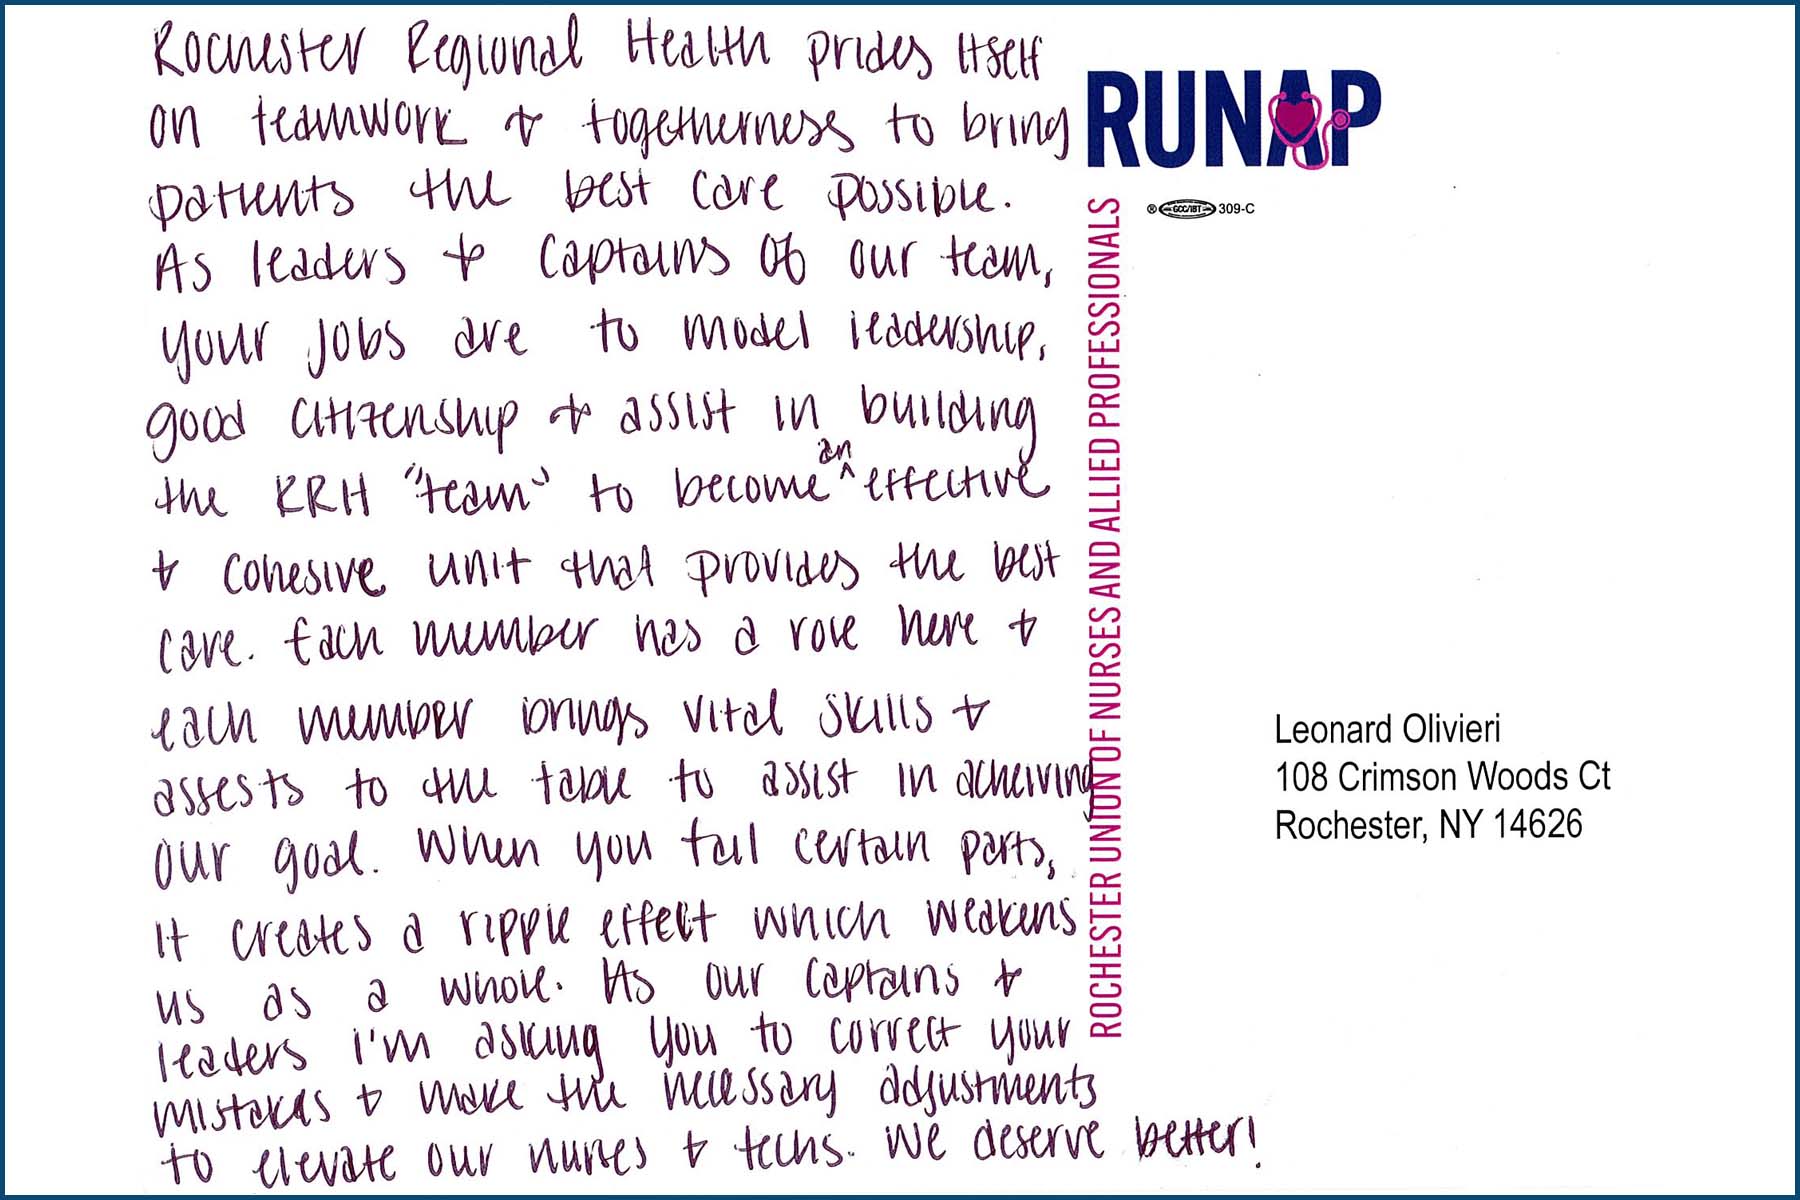 Rochester Regional Health prides itself
on teamwork & togetherness to bring
patients the best care possible.
As leaders & captains of our team,
your jobs are to model leadership,
good citizenship & assist in building
the RRH "team" to become an effective
& cohesive unit that provides the best
care. Each member has a role here &
each member brings vital skills &
assests to the table to assist in acheiving
our goal. When you fail certain parts,
it creates a ripple effect which weakens
us as a whole. As our captains &
leaders I'm asking you to correct your
mistakes & make the necessary adjustments
to elevate our nurses & techs. We deserve better!
RUNAP
® GCC/IBT 309-C
ROCHESTER UNION OF NURSES AND ALLIED PROFESSIONALS
Leonard Olivieri
108 Crimson Woods Ct
Rochester, NY 14626